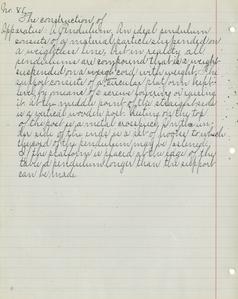 No. XL.
The construction of
Apparatus: A Pendulum. An ideal pendulum
consists of a material particle suspended on
a weightless line, but in reality all
pendulums are compound that is a weight
suspended on a cord with weight. The
support consists of a circular platform kept
level by means of a screw lowering or raising
it. At the middle point of the straight side
is a vertical wooden post. Resting on the top
of the post is a metal crosspiece. On the un-
der side of the ends is a set of hooks to which
the cord of the pendulum may be fastened.
If the platform is placed at the edge of the
table a pendulum longer than the support
can be made.